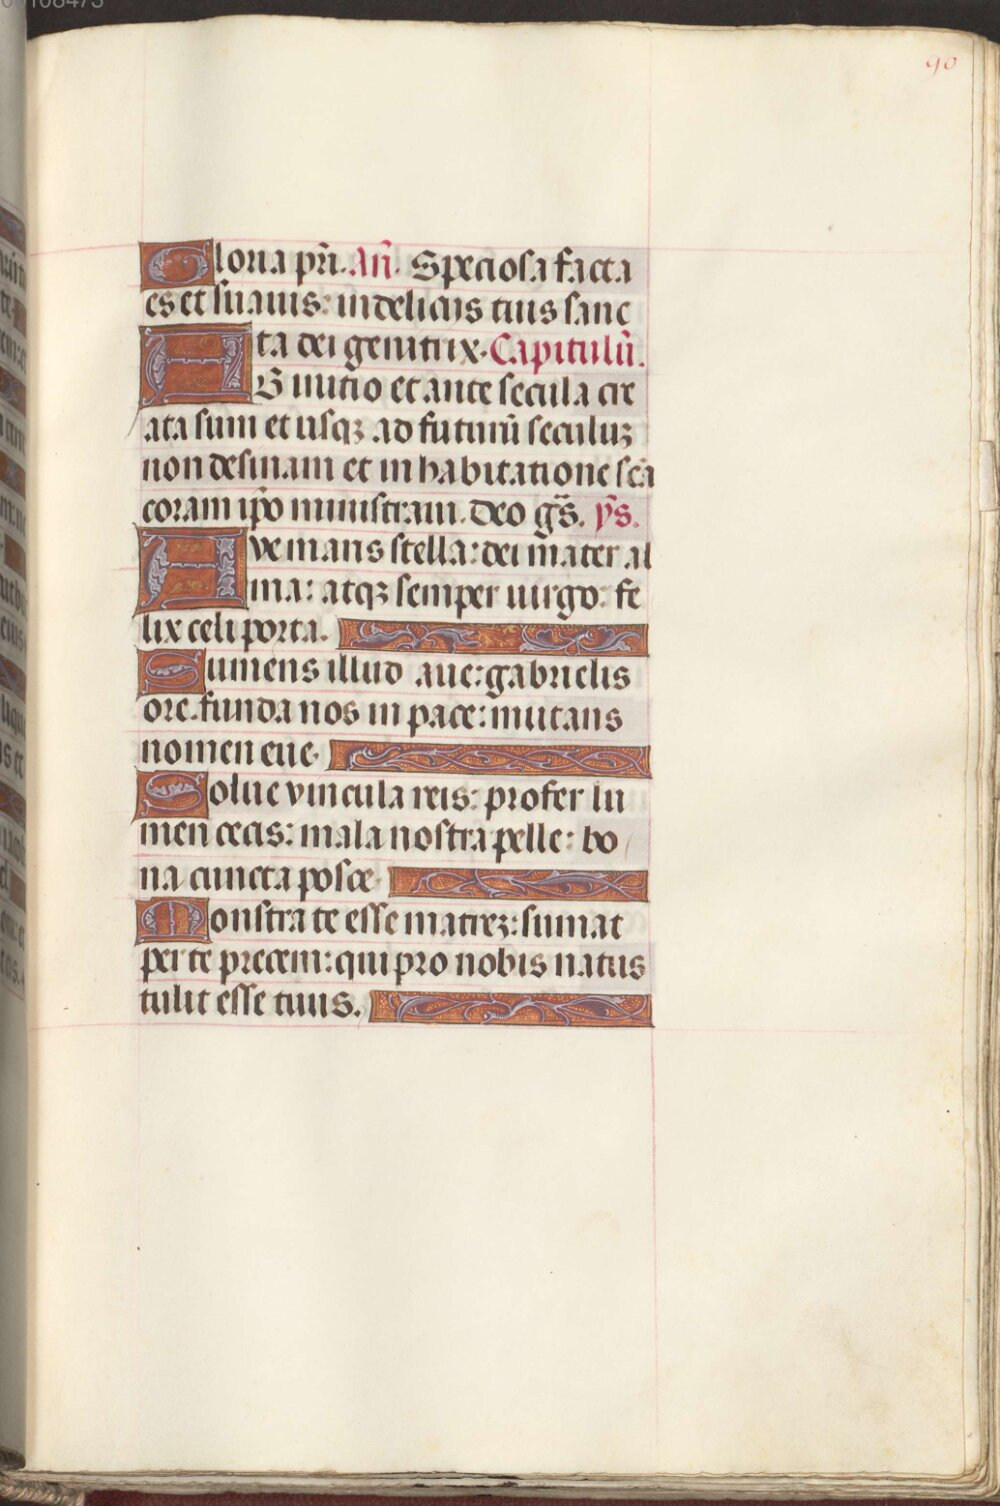 00108473
90
Gloria pr̃i. Añ. Speciosa facta
es et suauis: in deliciis tuis sanc
ta dei genitrix. Capitulũ.
AB initio et ante secula cre
ata sum et usqꝫ ad futurũ seculuꝫ
non desinam et in habitatione scã
coram ip̃o ministraui. Deo gr̃s. ỹs.
Aue maris stella: dei mater al
ma: atqꝫ semper uirgo: fe
lix celi porta.
Sumens illud aue: gabrielis
ore. funda nos in pace: mutans
nomen eue.
Solue vincula reis: profer lu
men cecis: mala nostra pelle: bo
na cuncta posce.
Monstra te esse matreꝫ: sumat
per te precem: qui pro nobis natus
tulit esse tuus.